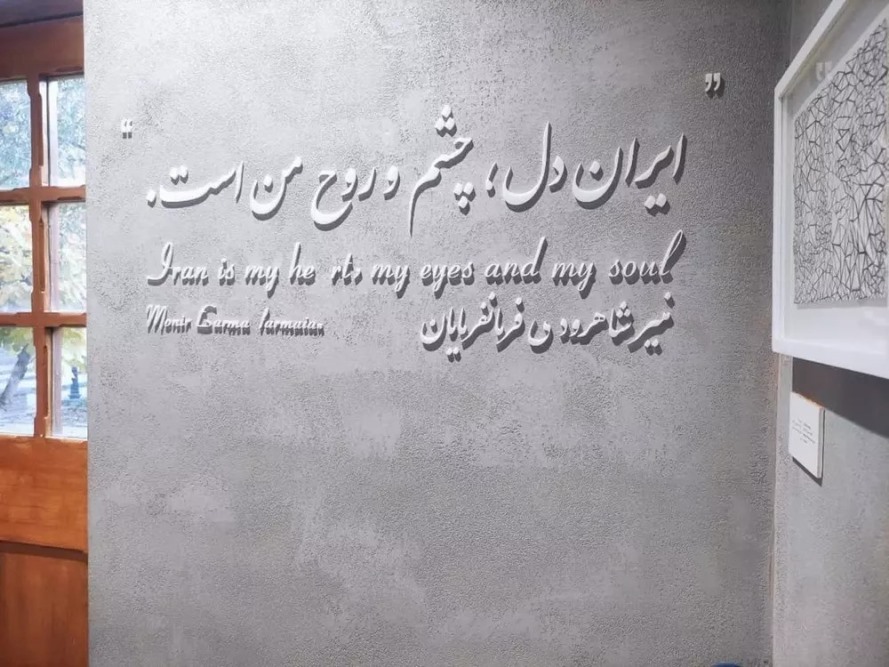 " ایران دل؛ چشم و روح من است. "
Iran is my he rt, my eyes and my soul
منیر شاهرودی فرمانفرمایان
Monir Farma farmaian